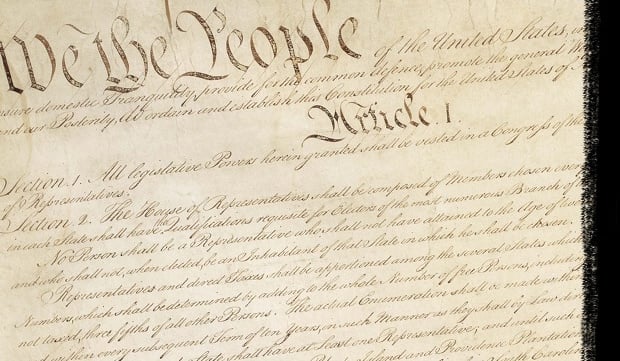 We the People of the United States, in
domestic Tranquility, provide for the common defence, promote the general
and our Posterity, do ordain and establish this Constitution for the United States of
Article. I.
Section. 1. All legislative Powers herein granted shall be vested in a Congress of the
of Representatives.
Section. 2. The House of Representatives shall be composed of Members chosen every
in each State shall have the Qualifications requisite for Electors of the most numerous Branch of the
No Person shall be a Representative who shall not have attained to the Age of twenty
and who shall not, when elected, be an Inhabitant of that State in which he shall be chosen.
Representatives and direct Taxes shall be apportioned among the several States which
Numbers, which shall be determined by adding to the whole Number of free Persons, including
not taxed, three fifths of all other Persons. The actual Enumeration shall be made within
within every subsequent Term of ten Years, in such Manner as they shall by Law direct
State shall have at Least one Representative; and until such
Island and Providence Plantations